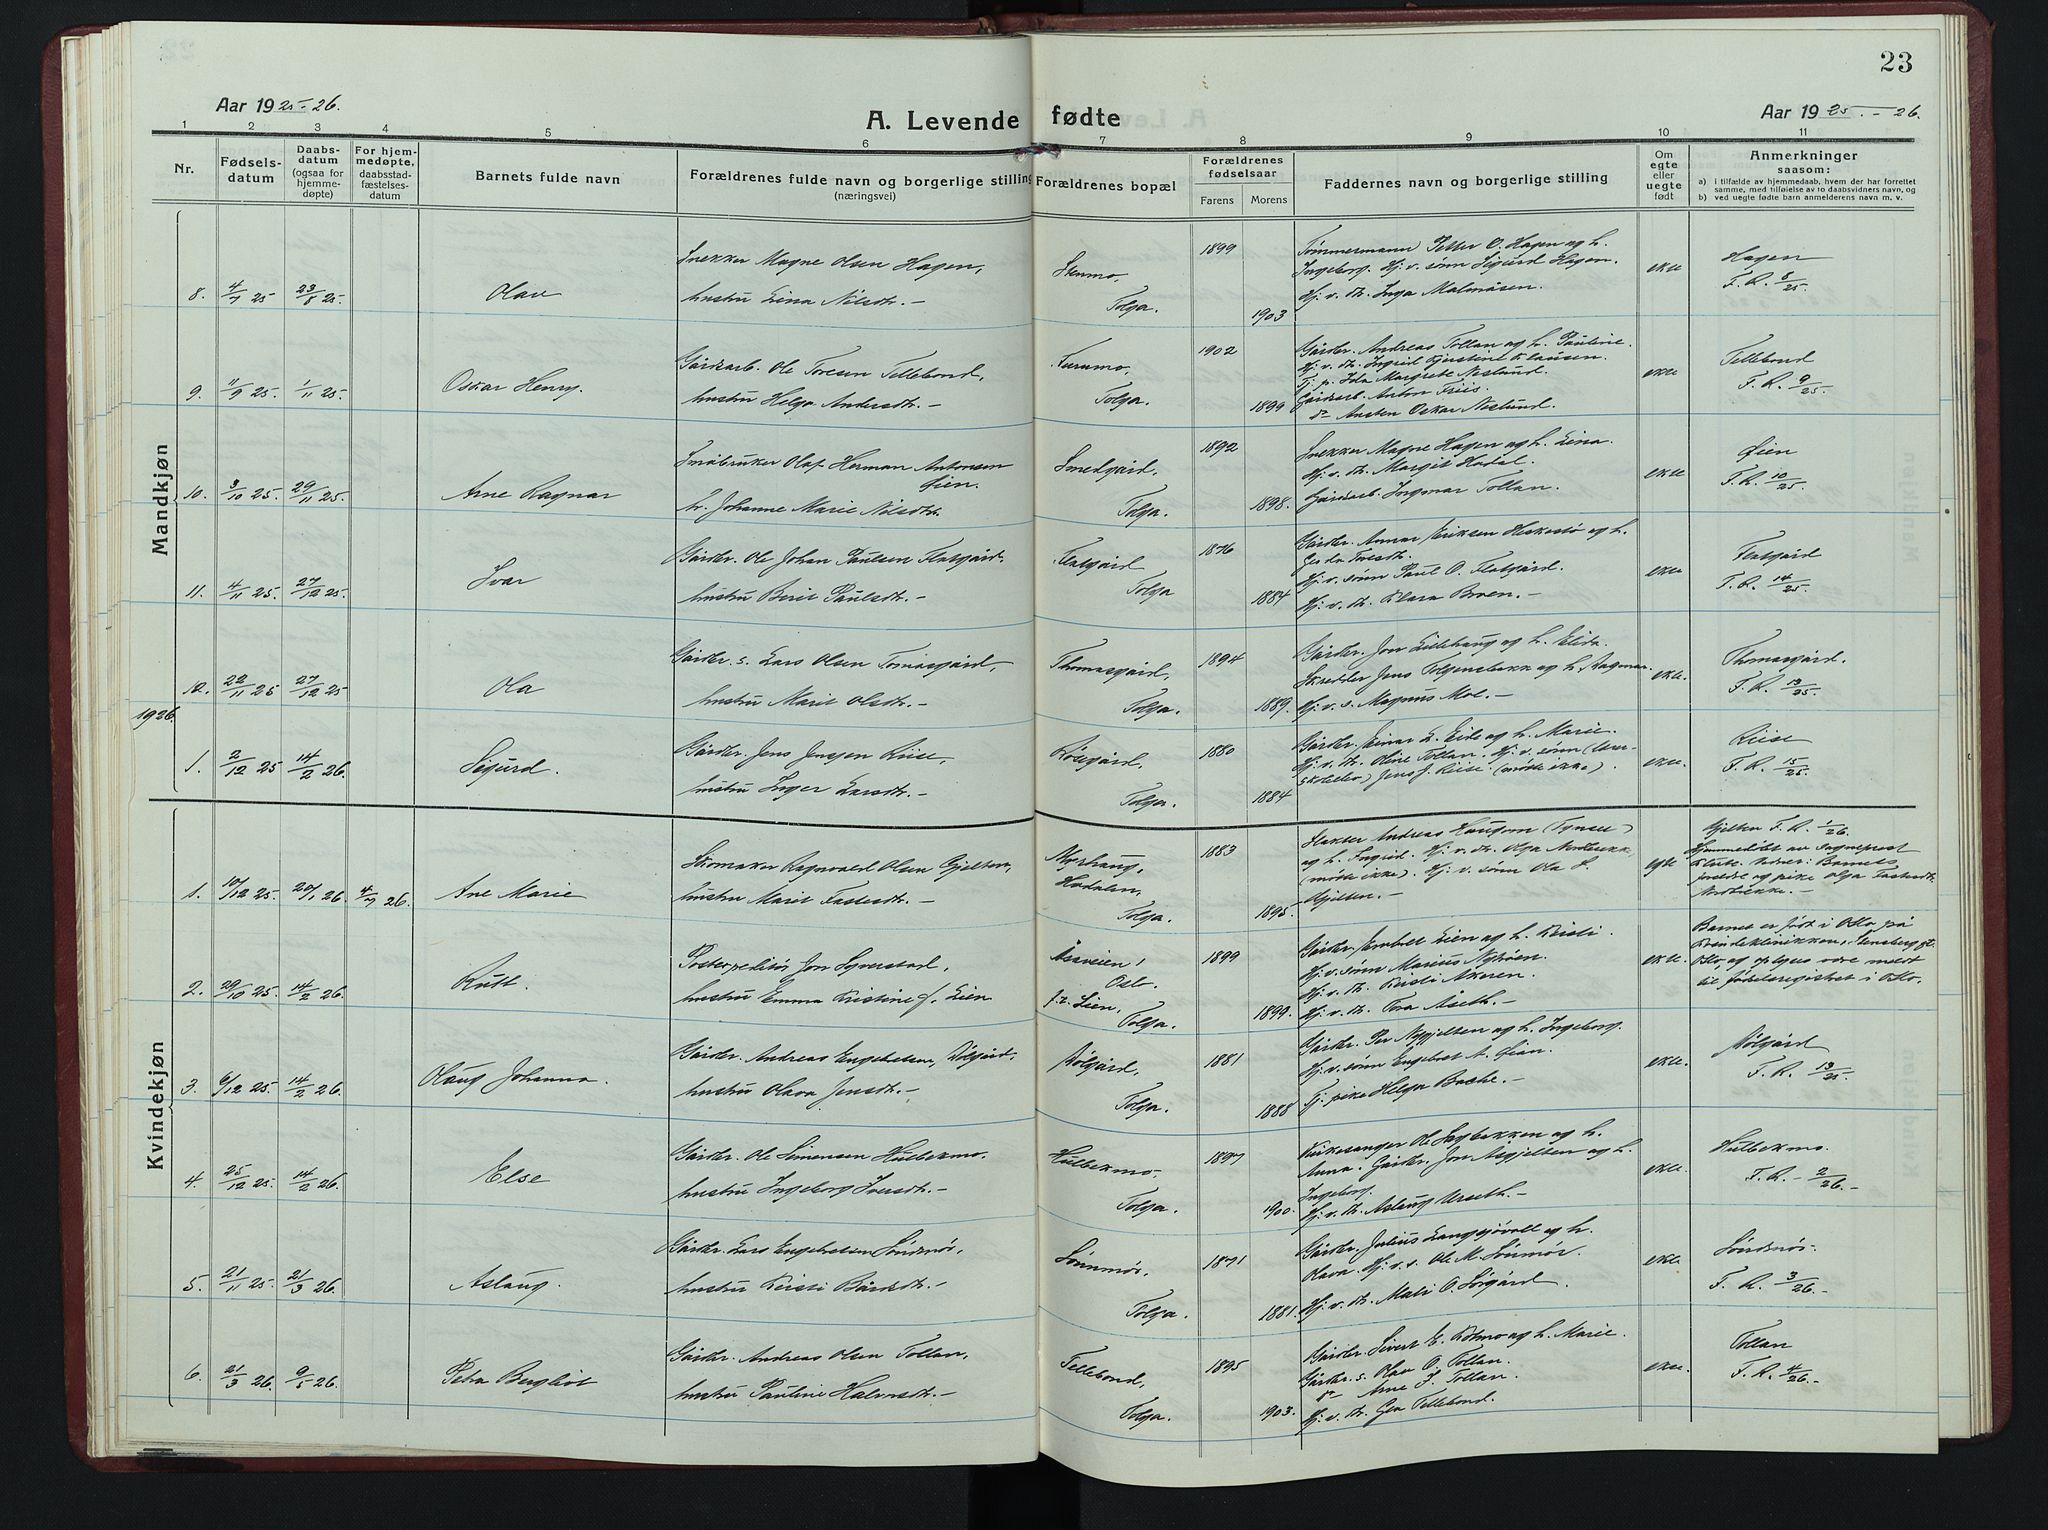 23
Aar 1925-26.
A. Levende fødte
Aar 1925.-26.
1 2 3 4 5 6 7 8 9 10 11
Nr.
Fødsels-
datum
Daabs-
datum
(ogsaa for
hjemme-
døpte)
For hjem-
medøpte,
daabsstad-
fæstelses-
datum
Barnets fulde navn
Forældrenes fulde navn og borgerlige stilling
(næringsvei)
Forældrenes bopæl
Forældrenes
fødselsaar
Farens Morens
Faddernes navn og borgerlige stilling
Om
egte
eller
uegte
født
Anmerkninger
saasom:
a) i tilfælde av hjemmedaab, hvem der har forrettet
samme, med tilføielse av to daabsvidners navn, og
b) ved uegte fødte barn anmelderens navn m. v.
Mandkjøn
8. 4/7 25 23/8 25. Olav
Snekker Magne Olsen Hagen,
hustru Lina Nilsdtr. –
Stenmo,
Tolga.
1899
1903
Tømmermann Petter O. Hagen og h.
Ingeborg. Hj. v. sønn Sigurd Hagen.
Hj. v. dtr. Inga Malmåsen.
ekte
Hagen
F. R. 8/25.
9. 11/9 25. 1/11 25. Oskar Henry.
Gårdsarb. Ole Toresen Tellebond,
hustru Helga Andersdtr. –
Furumo,
Tolga.
1902
1899
Gårdbr. Andreas Tollan og h. Pauline.
Hj. v. dtr. Ingrid Kjerstine Klausen.
Tj. p. Ida Margrete Neslund.
Gårdsarb. Anton Friis.
do Ansten Oskar Neslund.
ekte
Tellebond
F. R. 9/25.
10. 3/10 25. 29/11 25. Arne Ragnar
Småbruker Olaf Herman Antonsen
Øien.
h. Johanne Marie Nilsdtr.
Smedgård,
Tolga.
1892
1898.
Snekker Magne Hagen og h. Lina.
Hj. v. dtr. Margit Hodal.
Gårdsarb. Ingmar Tollan.
ekte
Øien
F. R. 10/25.
11. 4/11 25. 27/12 25. Ivar
Gårdbr. Ole Johan Paulsen Flatgård.
hustru Berit Paulsdtr. –
Flatgård
Tolga
1876
1884
Gårdbr. Annar Eriksen Hekestø og h.
Hj. v. sønn Paul O. Flatgård.
Hj. v. dtr. Klara Broen. –
ekte
Flatgård
F. R. 14/25.
12. 22/11 25 27/12 25 Ola
Gårdbr. s. Lars Olsen Tomasgård,
hustru Marit Olsdtr. –
Thomasgård,
Tolga.
1894
1889.
Gårdbr. Jon Lillehaug og h. Elida.
Skredder Jens Tolgensbakk og h. Dagmar.
Hj. v. s. Magnus Moe. –
ekte.
Thomasgård.
F. R. 13/25.
1926.
1. 2/12 25 14/2 26. Sigurd.
Gårdbr. Jens Jensen Riise,
hustru Inger Larsdtr. –
Tolga.
1880
1884
Gårdbr. Einar L. Eide og h. Marie.
Hj. v. dtr. Oline Tollan. Hj. v. sønn
Jens J. Riise. (møtte ikke).
ekte.
Riise
F. R. 15/25.
Kvindekjøn
1. 10/12 25. 20/1 26 4/7 26. Ane Marie
Skomaker Ragnvald Olsen Gjelten,
hustru Marit Fastesdtr. –
Myrhaug,
Hodalen,
Tolga.
1883
1895.
Slakter Andreas Haugom (Tynset)
og h. Ingrid. Hj. v. dtr. Olga Nordbekk
(møtte ikke). Hj. v. sønn Ola S.
Gjelten. –
egte
Gjelten F. R. 1/26.
Hjemmedøbt av sogneprest
Klute. Vidner: Barnets
foreldre og pike Olga Fastesdtr.
Nordbekk. –
2. 29/10 25. 14/2 26. Rutt.
Postexpeditør Jon Syverstad,
hustru Emma Kristine f. Lien
Åsaveien 1
Oslo
p.t. Lien,
Tolga.
1899
1899.
Gårdbr. Embret Lien og h. Kirsti.
Hj. v. sønn Marius Nytrøen.
Hj. v. dtr. Kirsti Akeren.
Hj. v. dtr. Tora Åseth. –
ekte.
Barnet er født i Oslo på
Kvindeklinikken, Stensberg gt.
Oslo, og oplyses være meldt
til fødselsregistret i Oslo.
3. 6/12 25. 14/2 26. Olaug Johanna.
Gårdbr. Andreas Engebretsen Dølgård.
hustru Olava Jensdtr. –
Dølgård,
Tolga.
1881
1888
Gårdbr. Per Nygjelten og h. Ingeborg.
Hj. v. sønn Engebret A. Øian.
Tj. pike Helga Bakke. –
ekte.
Dølgård
F. R. 13/25.
4. 25/12 25. 14/2 26. Else
Gårdbr. Ole Simensen Hulbekmo.
hustru Ingeborg Iversdtr. –
Hulbekmo.
Tolga.
1897
1900.
Kirkesanger Ole Sagbakken og h.
Anna. Gårdbr. Jon Nygjelten og h.
Ingeborg.
Hj. v. dtr. Aslaug Urseth. –
ekte.
Hulbekmo.
F. R. – 2/26. –
5. 21/11 25. 21/3 26. Aslaug.
Gårdbr. Lars Engebretsen Søndmør,
hustru Kirsti Bårdsdtr. –
Sønnmør,
Tolga.
1871
1881.
Gårdbr. Julius Langsjøvoll og h.
Olava. Hj. v. s. Ole M. Sønmør.
Hj. v. dtr. Mali O. Sørgård.
ekte
Søndmør.
F. R. 3/26. –
6. 21/3 26. 9/5 26. Petra Bergliot
Gårdbr. Andreas Olsen Tollan,
hustru Pauline Halvorsdtr. –
Tellebond,
Tolga.
1895
1903.
Gårdbr. Sivert E. Kotmo og h. Marie.
Gårdbr. s. Olav O. Tollan.
do Arne J. Tollan.
Hj. v. dtr. Gea Tellebond.
ekte.
Tollan
F. R. 4/26. –